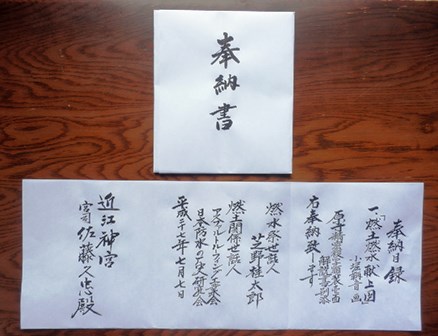 奉納書
奉納目録
一、「燃土燃水献上図」
小堀鞆音画
右奉納致します
燃水祭世話人
芝野桂太郎
燃土関係世話人
アスファルトルーフィング工業会
日本防水の歴史研究会
平成二十七年七月七日
近江神宮
宮司 佐藤久忠殿